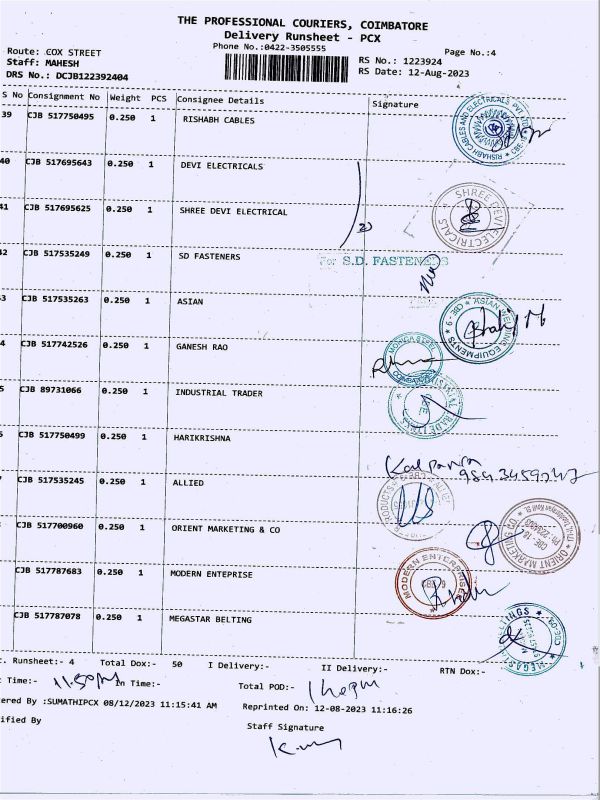 THE PROFESSIONAL COURIERS, COIMBATORE
Delivery Runsheet - PCX
Phone No.:0422-3505555
Page No.:4
Route: COX STREET
Staff: MAHESH
DRS No.: DCJB122392404
RS No.: 1223924
RS Date: 12-Aug-2023
S No Consignment No Weight PCS Consignee Details Signature
39 CJB 517750495 0.250 1 RISHABH CABLES
40 CJB 517695643 0.250 1 DEVI ELECTRICALS
41 CJB 517695625 0.250 1 SHREE DEVI ELECTRICAL
SHREE DEVI ELECTRICALS
42 CJB 517535249 0.250 1 SD FASTENERS
For S.D. FASTENERS
3 CJB 517535263 0.250 1 ASIAN
4 CJB 517742526 0.250 1 GANESH RAO
5 CJB 89731066 0.250 1 INDUSTRIAL TRADER
CJB 517750499 0.250 1 HARIKRISHNA
Kalpana
CJB 517535245 0.250 1 ALLIED
CJB 517700960 0.250 1 ORIENT MARKETING & CO
CJB 517787683 0.250 1 MODERN ENTEPRISE
MODERN ENTERPRISES
CJB 517787078 0.250 1 MEGASTAR BELTING
. Runsheet:- 4 Total Dox:- 50 I Delivery:- II Delivery:- RTN Dox:-
Time:- 11.50pm In Time:- Total POD:-
ered By :SUMATHIPCX 08/12/2023 11:15:41 AM Reprinted On: 12-08-2023 11:16:26
ified By Staff Signature